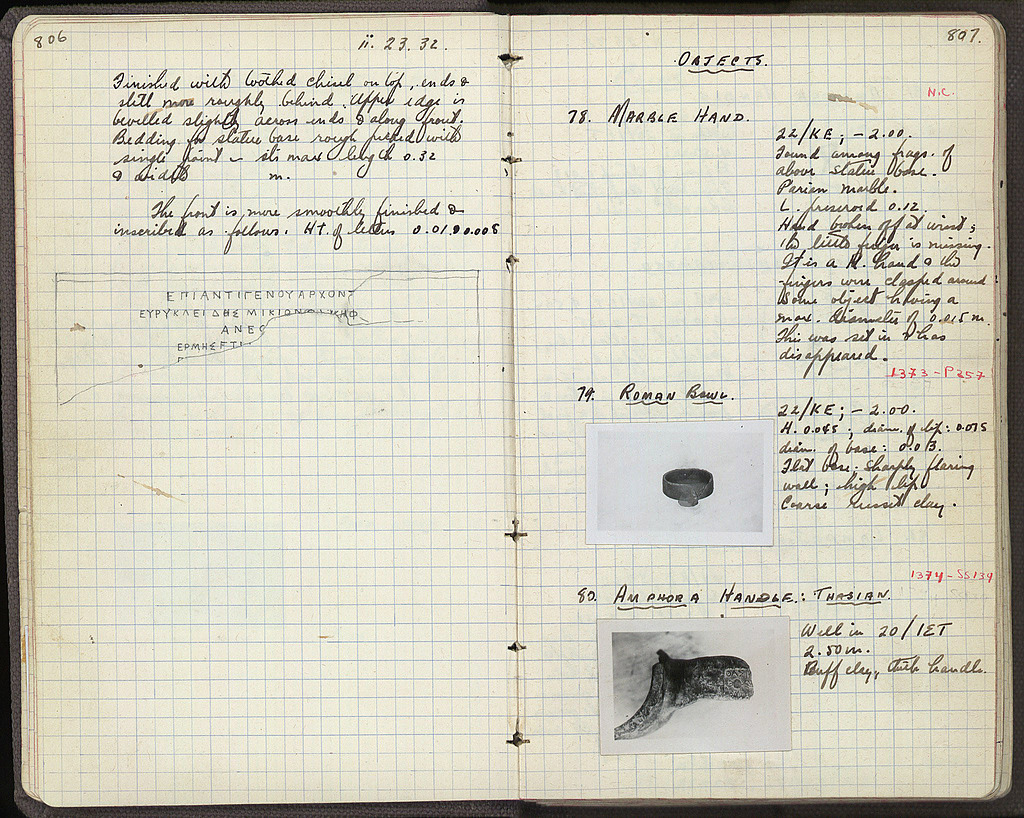 806
ii. 23. 32.
Finished with toothed chisel on top, ends &
still more roughly behind. Upper edge is
bevelled slightly across ends & along front.
Bedding for statue base rough picked with
single point – its max length 0.32
& width m.
The front is more smoothly finished &
inscribed as follows. Ht. of letters 0.01, 0.008
ΕΠΙΑΝΤΙΓΕΝΟΥΑΡΧΟΝΤ
ΕΥΡΥΚΛΕΙΔΗΣΜΙΚΙΩΝΟΣΚΗΦ
ΑΝΕΘ
ΕΡΜΗΣΕΤΙ
807.
OBJECTS.
N.C.
78. MARBLE HAND.
22/ΚΕ; – 2.00.
Found among frags. of
above statue base.
Parian marble.
L. preserved 0.12.
Hand broken off at wrist;
the little finger is missing.
It is a hand & the
fingers were clasped around
some object having a
max. diameter of 0.015 m.
This was set in & has
disappeared.
1373 – P257
79. ROMAN BOWL.
22/ΚΕ; – 2.00.
H. 0.045; diam. of lip: 0.075
diam. of base: 0.03.
Flat base; sharply flaring
wall; high lip.
Coarse russet clay.
1374 – SS139
80. AMPHORA HANDLE: THASIAN.
Well in 20/ΙΣΤ
2.50 m.
Buff clay, thick handle.